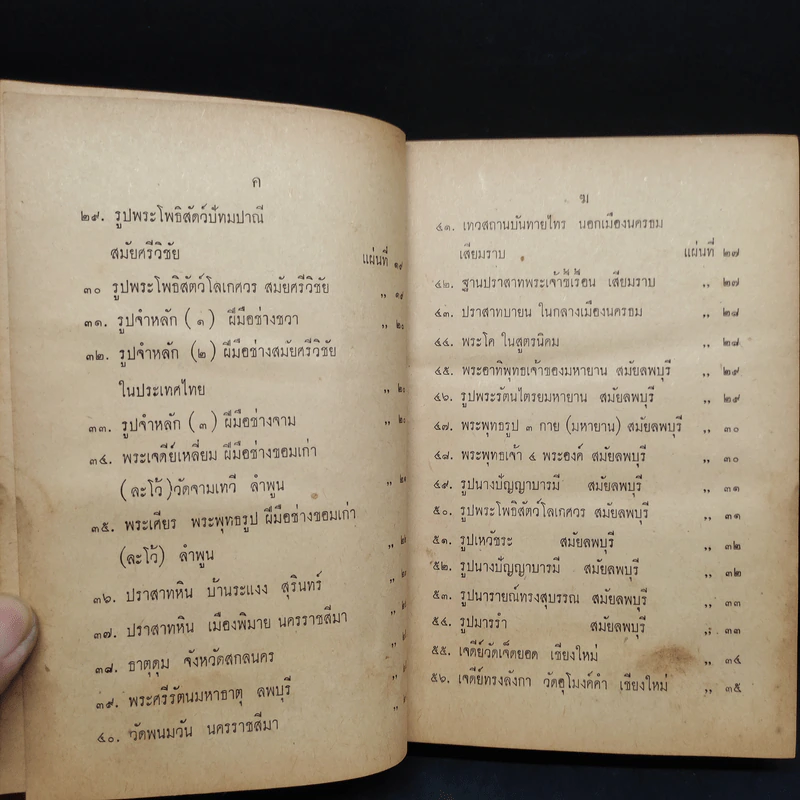 ค
๒๙. รูปพระโพธิสัตว์ปัทมปาณี
สมัยศรีวิชัย แผ่นที่ ๑๙
๓๐ รูปพระโพธิสัตว์โลเกศวร สมัยศรีวิชัย ,, ๑๙
๓๑. รูปจำหลัก (๑) ฝีมือช่างชวา ,, ๒๐
๓๒. รูปจำหลัก (๒) ฝีมือช่างสมัยศรีวิชัย
ในประเทศไทย ,, ๒๐
๓๓. รูปจำหลัก (๓) ฝีมือช่างจาม ,, ๒๐
๓๔. พระเจดีย์เหลี่ยม ฝีมือช่างขอมเก่า
(ละโว้) วัดจามเทวี ลำพูน ,, ๒๑
๓๕. พระเศียร พระพุทธรูป ฝีมือช่างขอมเก่า
(ละโว้) ลำพูน ,,
๓๖. ปราสาทหิน บ้านระแงง สุรินทร์ ,,
๓๗. ปราสาทหิน เมืองพิมาย นครราชสีมา ,,
๓๘. ธาตุดุม จังหวัดสกลนคร ,,
๓๙. พระศรีรัตนมหาธาตุ ลพบุรี ,,
๔๐. วัดพนมวัน นครราชสีมา
ฆ
๔๑. เทวสถานบันทายไทร นอกเมืองนครธม
เสียมราบ แผ่นที่ ๒๗
๔๒. ฐานปราสาทพระเจ้าขี้เรื้อน เสียมราบ ,, ๒๗
๔๓. ปราสาทบายน ในกลางเมืองนครธม ,, ๒๘
๔๔. พระโค ในสูตรนิคม ,, ๒๘
๔๕. พระอาทิพุทธเจ้าของมหายาน สมัยลพบุรี ,, ๒๙
๔๖. รูปพระรัตนไตรยมหายาน สมัยลพบุรี ,, ๒๙
๔๗. พระพุทธรูป ๓ กาย (มหายาน) สมัยลพบุรี ,, ๓๐
๔๘. พระพุทธเจ้า ๔ พระองค์ สมัยลพบุรี ,, ๓๐
๔๙. รูปนางปัญญาบารมี สมัยลพบุรี ,, ๓๑
๕๐. รูปพระโพธิสัตว์โลเกศวร สมัยลพบุรี ,, ๓๑
๕๑. รูปเหวัชระ สมัยลพบุรี ,, ๓๒
๕๒. รูปนางปัญญาบารมี สมัยลพบุรี ,, ๓๒
๕๓. รูปนารายณ์ทรงสุบรรณ สมัยลพบุรี ,, ๓๓
๕๔. รูปมารรำ สมัยลพบุรี ,, ๓๓
๕๕. เจดีย์วัดเจ็ดยอด เชียงใหม่ ,, ๓๔
๕๖. เจดีย์ทรงลังกา วัดอุโมงค์คำ เชียงใหม่ ,, ๓๕